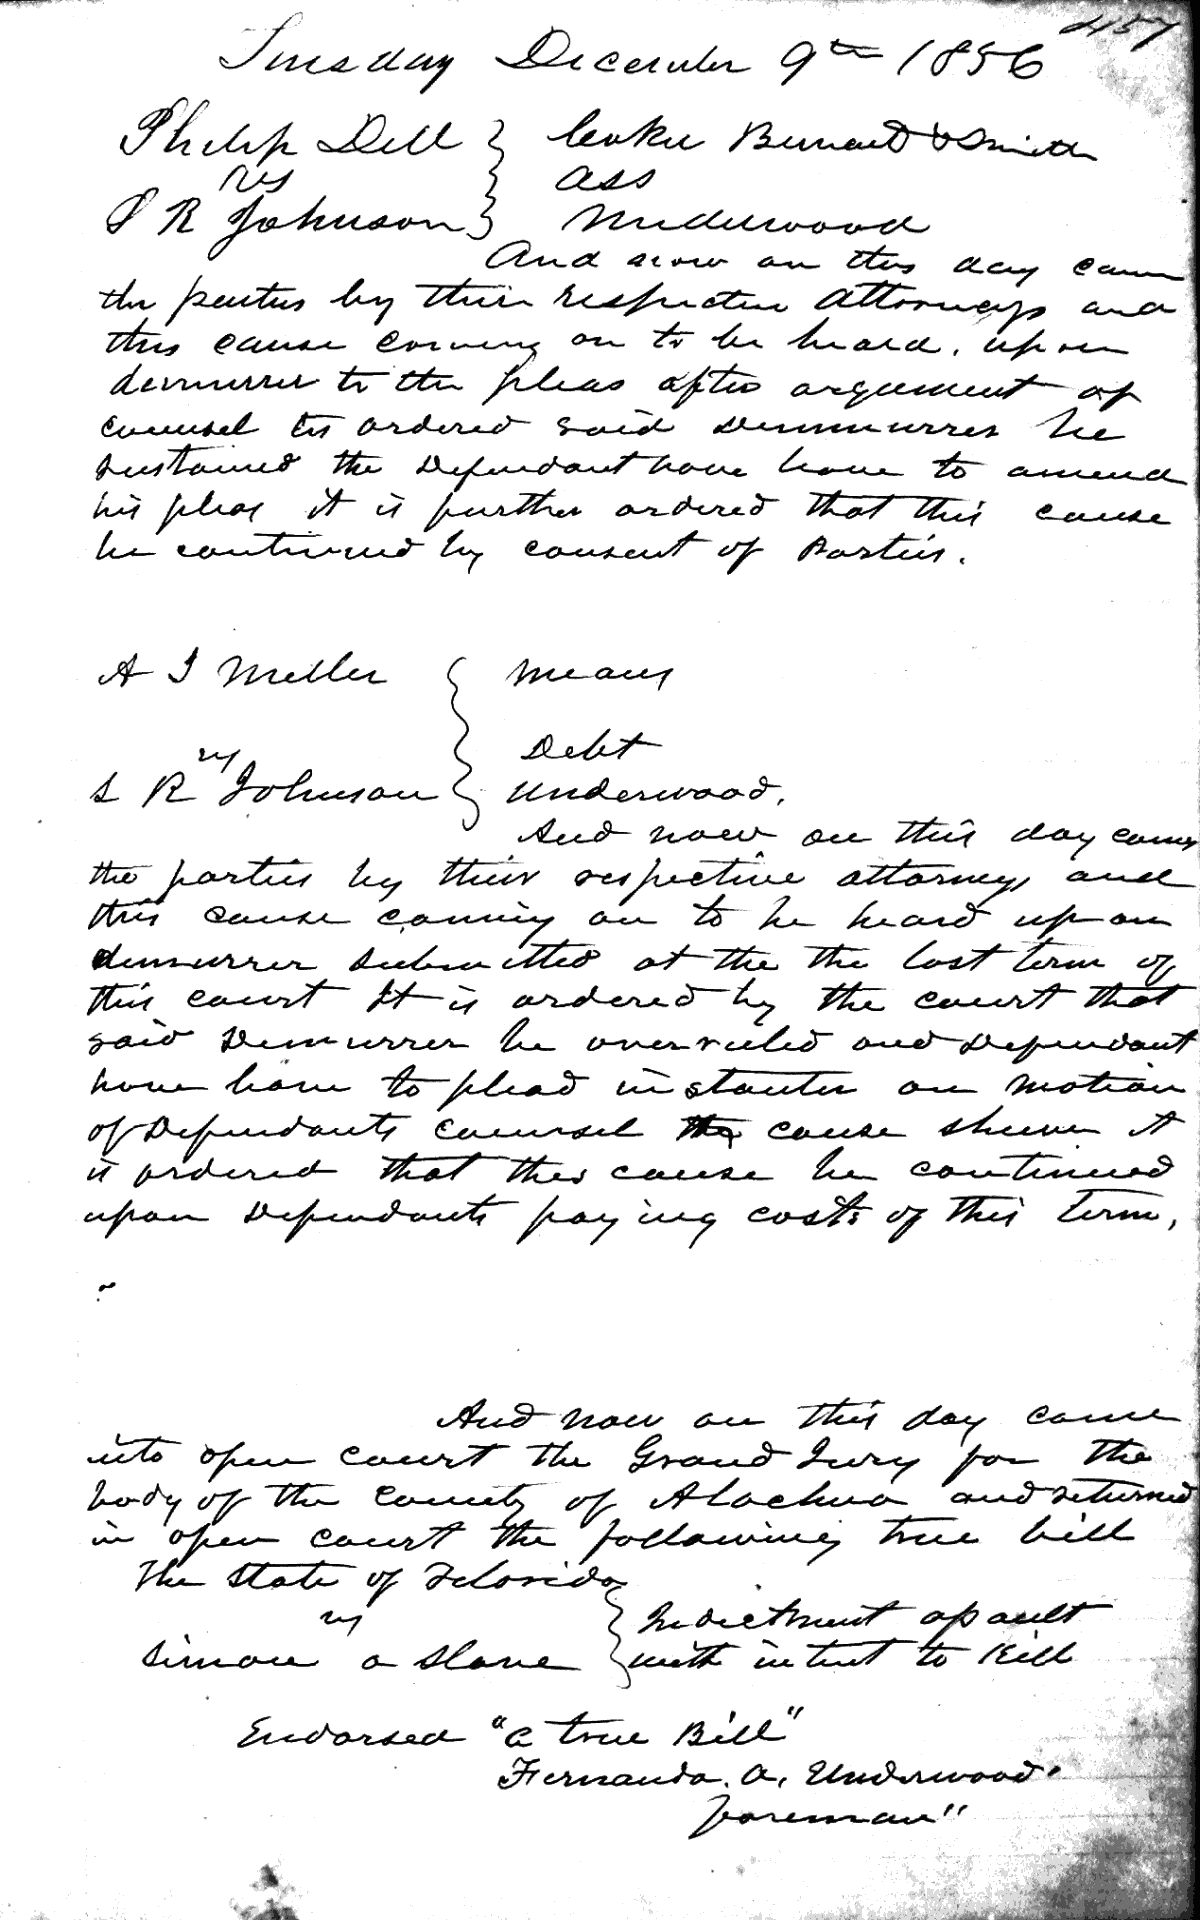 457
Tuesday December 9th 1856
Philip Dell Cooke Burnard & Smith
vs Ass
S R Johnson Underwood
And now on this day came
the parties by their respective attorneys and
this cause coming on to be heard, upon
demurrer to the pleas after argument of
counsel tis ordered said Demmurrer be
sustained the Defendant have leave to amend
his pleas it is further ordered that this cause
be continued by consent of Parties.
A I Miller Means
Debt
vs
S R Johnson Underwood,
And now on this day comes
the parties by their respective attorneys and
this cause coming on to be heard upon
demurrer submitted at the the last term of
this court It is ordered by the court that
said Demurrer be overruled and Defendant
have leave to plead instanter on motion
of Defendants counsel cause shewn it
is ordered that this cause be continued
upon Defendants paying costs of this term,
And now on this day came
into open court the Grand Jury for the
body of the County of Alachua and returned
in open court the following true bill
The State of Florida
vs Indictment apault
Simon a slave with intent to Kill
Endorsed "a true Bill"
Fernando. A. Underwood.
foreman"